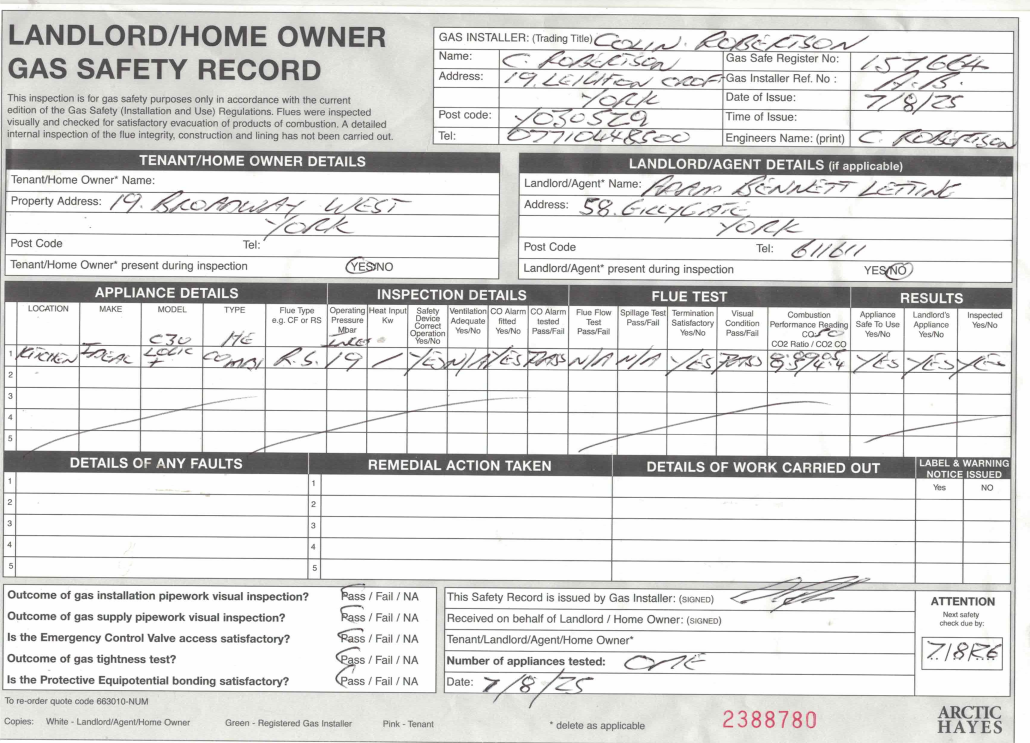 LANDLORD/HOME OWNER
GAS SAFETY RECORD
This inspection is for gas safety purposes only in accordance with the current
edition of the Gas Safety (Installation and Use) Regulations. Flues were inspected
visually and checked for satisfactory evacuation of products of combustion. A detailed
internal inspection of the flue integrity, construction and lining has not been carried out.
GAS INSTALLER: (Trading Title) COLIN. ROBERTSON
Name: C. ROBERTSON Gas Safe Register No: 157664
Address: 19. LEIGHTON CROFT Gas Installer Ref. No : A.B.
YORK Date of Issue: 7/8/25
Post code: YO30 5ZQ Time of Issue:
Tel: 07710448500 Engineers Name: (print) C. ROBERTSON
TENANT/HOME OWNER DETAILS
Tenant/Home Owner* Name:
Property Address: 19. BROADWAY WEST
YORK
Post Code Tel:
Tenant/Home Owner* present during inspection YES/NO
LANDLORD/AGENT DETAILS (if applicable)
Landlord/Agent* Name: ADAM BENNETT LETTING
Address: 58. GILLYGATE
YORK
Post Code Tel: 611611
Landlord/Agent* present during inspection YES/NO
APPLIANCE DETAILS INSPECTION DETAILS FLUE TEST RESULTS
LOCATION MAKE MODEL TYPE Flue Type e.g. CF or RS Operating Pressure Mbar Heat Input Kw Safety Device Correct Operation Yes/No Ventilation Adequate Yes/No CO Alarm fitted Yes/No CO Alarm tested Pass/Fail Flue Flow Test Pass/Fail Spillage Test Pass/Fail Termination Satisfactory Yes/No Visual Condition Pass/Fail Combustion Performance Reading CO2 Ratio / CO2 CO Appliance Safe To Use Yes/No Landlord's Appliance Yes/No Inspected Yes/No
1 KITCHEN IDEAL C30 LOGIC + HE COMBI R.S. INLET 19 / YES N/A YES PASS N/A N/A YES PASS YES YES YES
2
3
4
5
DETAILS OF ANY FAULTS REMEDIAL ACTION TAKEN DETAILS OF WORK CARRIED OUT LABEL & WARNING NOTICE ISSUED
Yes NO
1 1
2 2
3 3
4 4
5 5
Outcome of gas installation pipework visual inspection? Pass / Fail / NA
Outcome of gas supply pipework visual inspection? Pass / Fail / NA
Is the Emergency Control Valve access satisfactory? Pass / Fail / NA
Outcome of gas tightness test? Pass / Fail / NA
Is the Protective Equipotential bonding satisfactory? Pass / Fail / NA
This Safety Record is issued by Gas Installer: (SIGNED)
Received on behalf of Landlord / Home Owner: (SIGNED)
Tenant/Landlord/Agent/Home Owner*
Number of appliances tested: ONE
Date: 7/8/25
ATTENTION
Next safety
check due by:
7/8/26
To re-order quote code 663010-NUM
Copies: White - Landlord/Agent/Home Owner Green - Registered Gas Installer Pink - Tenant * delete as applicable 2388780
ARCTIC
HAYES